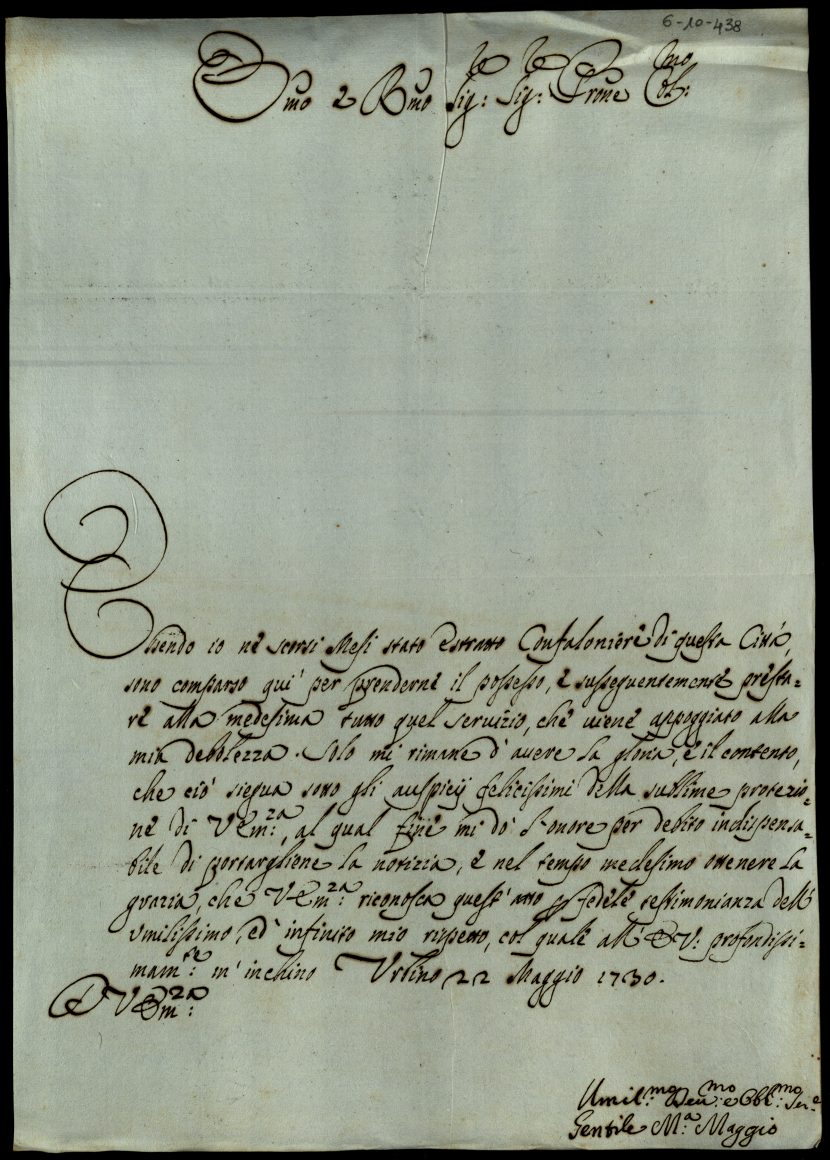 6-10-438
Emo e Rmo Sig:re Sig:re Prone Col:mo
Essendo io nè scorsi Mesi stato estratto Confaloniere di questa Città,
sono comparso quì per prenderne il possesso, e susseguentemente presta=
re alla medesima tutto quel servizio, che viene appoggiato alla
mia debolezza. Solo mi rimane d'avere la gloria, e il contento,
che ciò siegua sotto gli auspicij felicissimi della sublime protezio=
ne di V Em:za, al qual fine mi dò l'onore per debito indispensa=
bile di portargliene la notizia, e nel tempo medesimo ottenere la
grazia, che V Em:za riconosca quest'atto p fedele testimonianza dell'
umilissimo, ed' infinito mio rispetto, col quale all' E V: profondissi=
mam:te m'inchino Urbino 22 Maggio 1730.
D V Em:za
Umil:mo Deu:mo e Obl:mo Ser:e
Gentile M:a Maggio